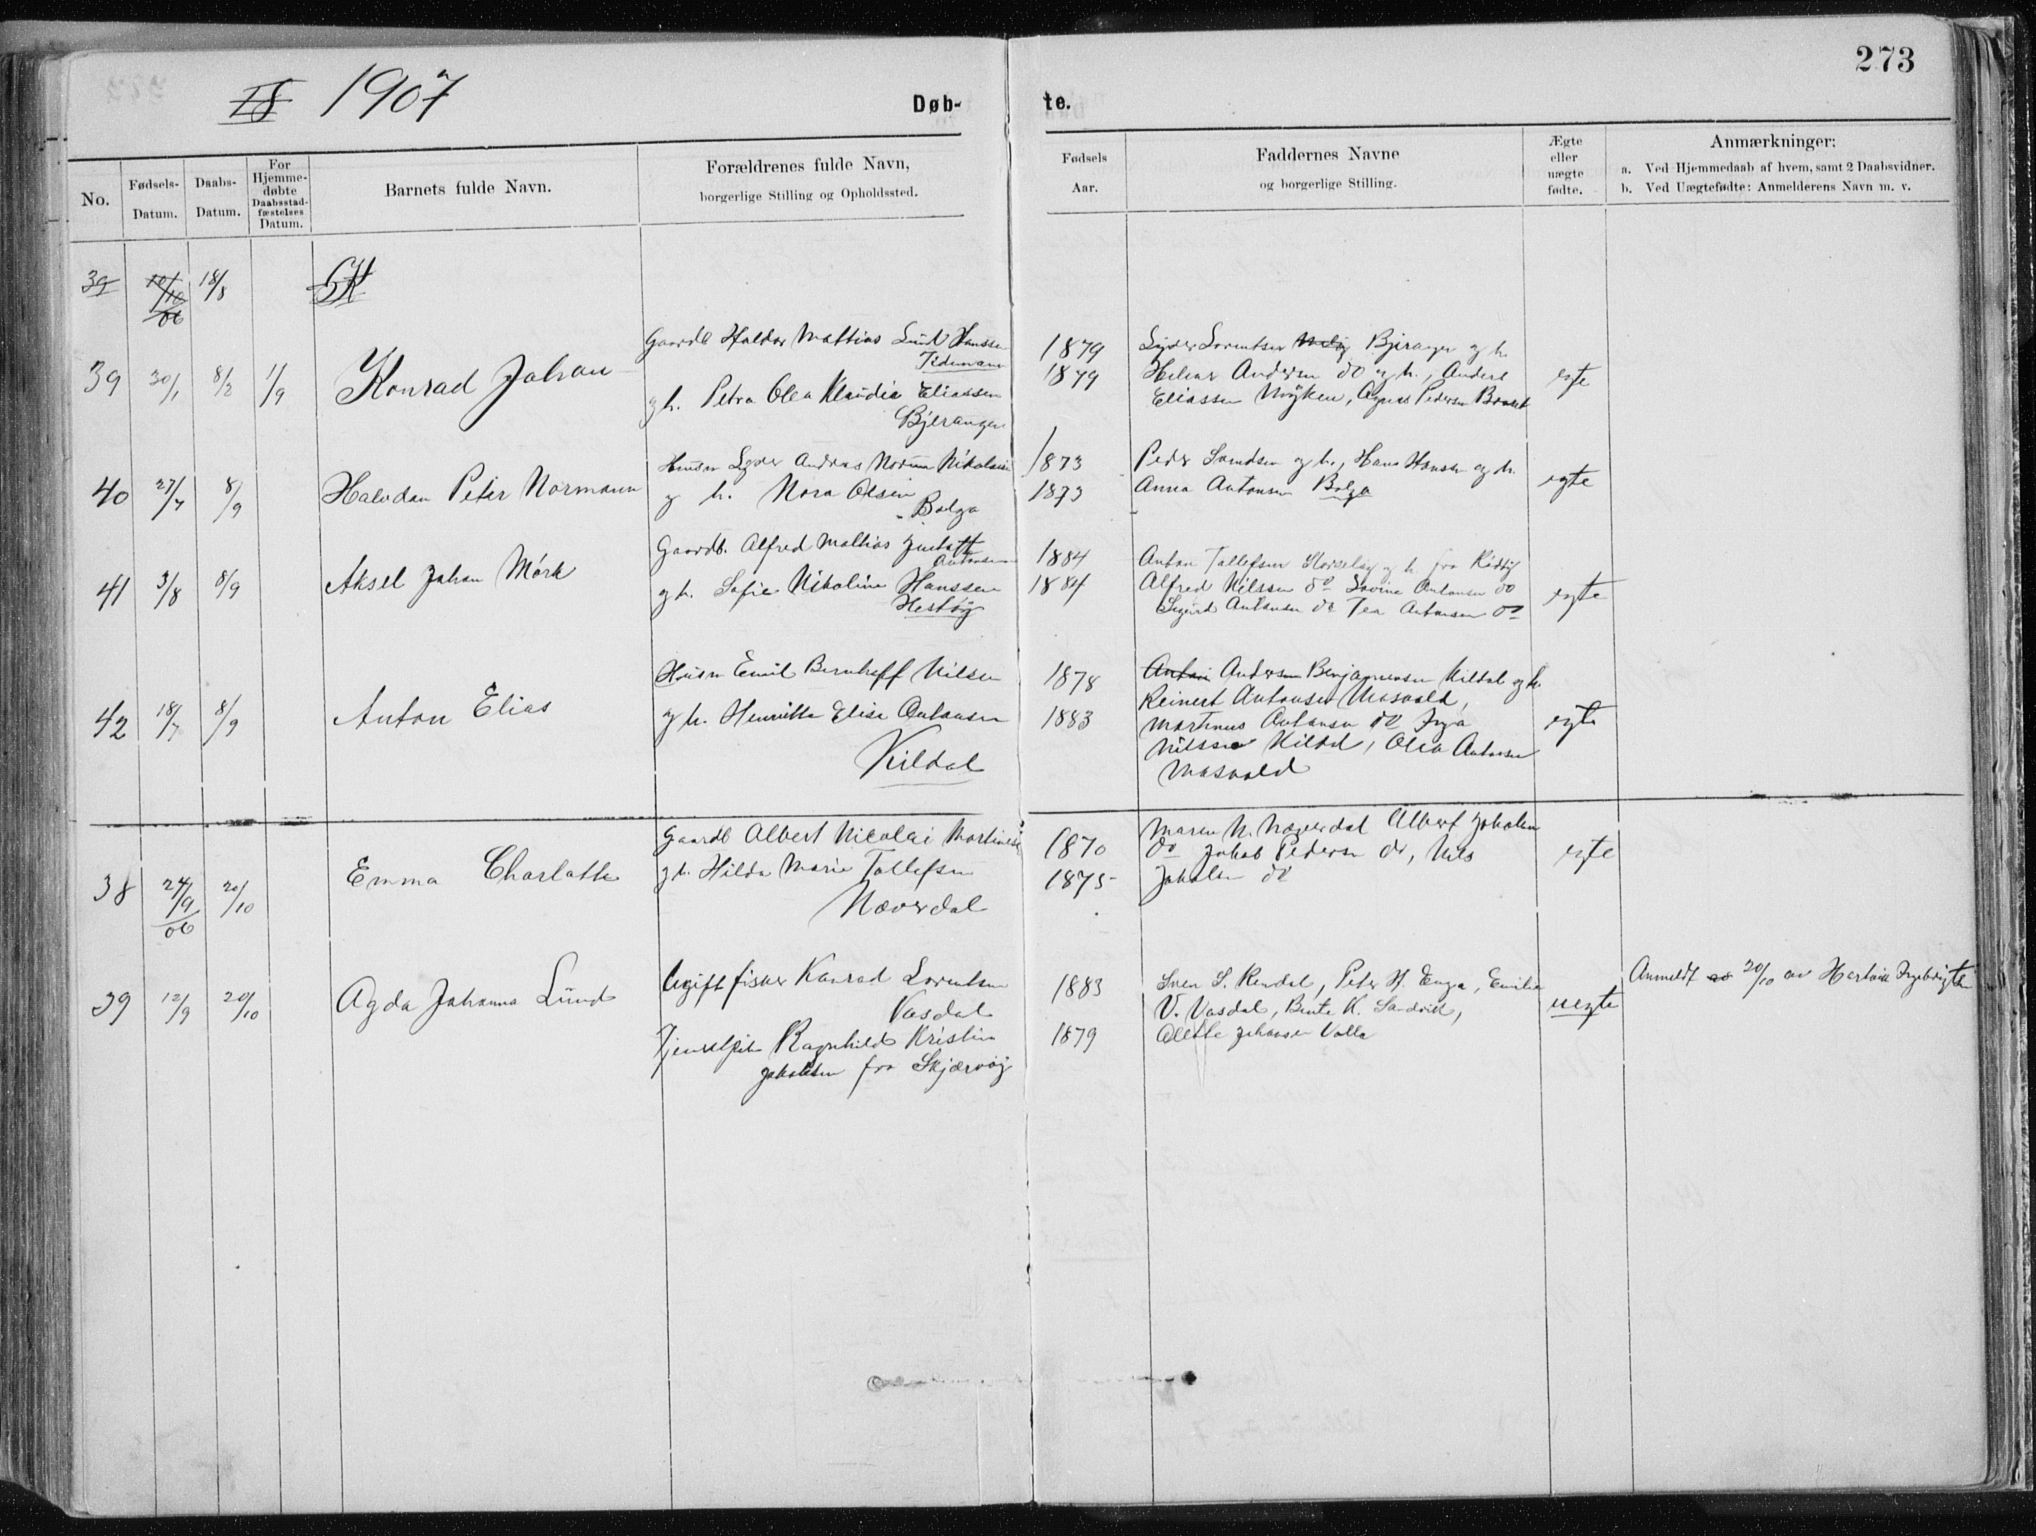 273
1907
Døb-
te.
No.
Fødsels-
Datum.
Daabs-
Datum.
For
Hjemme-
døbte
Daabsstad-
fæstelses
Datum.
Barnets fulde Navn.
Forældrenes fulde Navn,
borgerlige Stilling og Opholdssted.
Fødsels
Aar.
Faddernes Navne
og borgerlige Stilling.
Ægte
eller
uægte
fødte.
Anmærkninger:
a. Ved Hjemmedaab af hvem, samt 2 Daabsvidner.
b. Ved Uægtefødte: Anmelderens Navn m. v.
39 10/10 06 18/8
39 30/1 8/2 1/9 Konrad Johan
Gaardb Haldor Mathias Lund Hanssen
Tidemann
g h. Petra Olea Klaudia Eliassen
Bjerangen
1879
1879
Lyder Lorentsen Bjerangen og h.
Hilmar Andersen do og h., Anders
Eliassen Myken, Agnes Pedersen
egte
40 27/7 8/9 Halvdan Peter Normann
Husm Lyder Andreas Normann Nikolaisen
g h. Nora Olsen
Bolga
1873
1873
Peder Svendsen og h., Hans Hansen og h.
Anna Antonsen Bolga
egte
41 3/8 8/9 Aksel Johan Mörk
Gaardb. Alfred Mathias Gustav
Antonsen
g h. Sofie Nikoline Hanssen
Hestöy
1884
1884
Anton Tollefsen Storselöy og h fra Rödöy
Alfred Nilssen do Lovine Antonsen do
Sigurd Antonsen do Tea Antonsen do
egte
42 18/7 8/9 Anton Elias
Husm Emil Bernhoff Nilsen
g h. Henrikka Elisa Antonsen
Kildal
1878
1883
Anton Andersen Benjaminsen Kildal og h.
Reinert Antonsen Masvold,
Martinus Antonsen do Inga
Nilssen Kildal, Olea Antonsen
Masvold
egte
38 24/9 06 20/10 Emma Charlotte
Gaardb Albert Nicolai Martinsen
g h. Hilda Marie Tollefsen
Næverdal
1870
1875
Maren N. Næverdal Albert Jakobsen
do Jakob Pedersen do, Nils
Jakobsen do
egte
39 12/9 20/10 Agda Johanna Lund
Ugift fisker Konrad Lorentsen
Vasdal
Tjenestpike Ragnhild Kristine
Jakobsen fra Skjærvöy
1883
1879
Sven S. Rendal, Peter H. Enga, Emilie
V. Vasdal, Bente K. Sandvik,
Olette Johansen Valla
uegte
Anmeldt 20/10 av Hartvik Ingebrigts